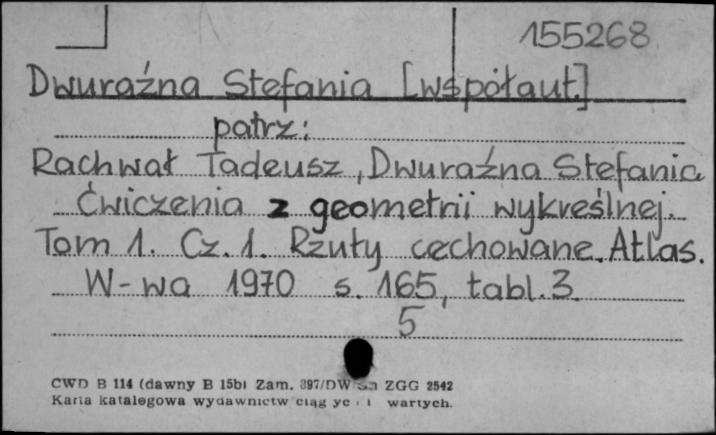 155268
Dwuraźna Stefania [współaut.]
patrz:
Rachwał Tadeusz, Dwuraźna Stefania
Ćwiczenia z geometrii wykreślnej.
Tom 1. Cz. 1. Rzuty cechowane. Atlas.
W-wa 1970 s. 165, tabl. 3
5
CWD B 114 (dawny B 15b) Zam. 397/DW ZGG 2542
Karta katalogowa wydawnictw ciąg